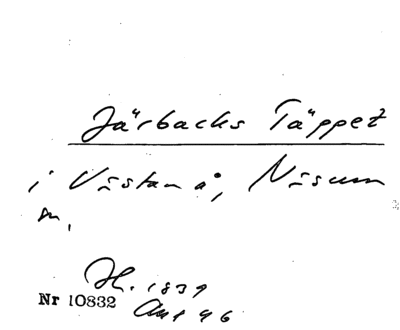 Järbacks Täppet
i Västanå, Näsum
sn.
H. 1839
Nr 10832